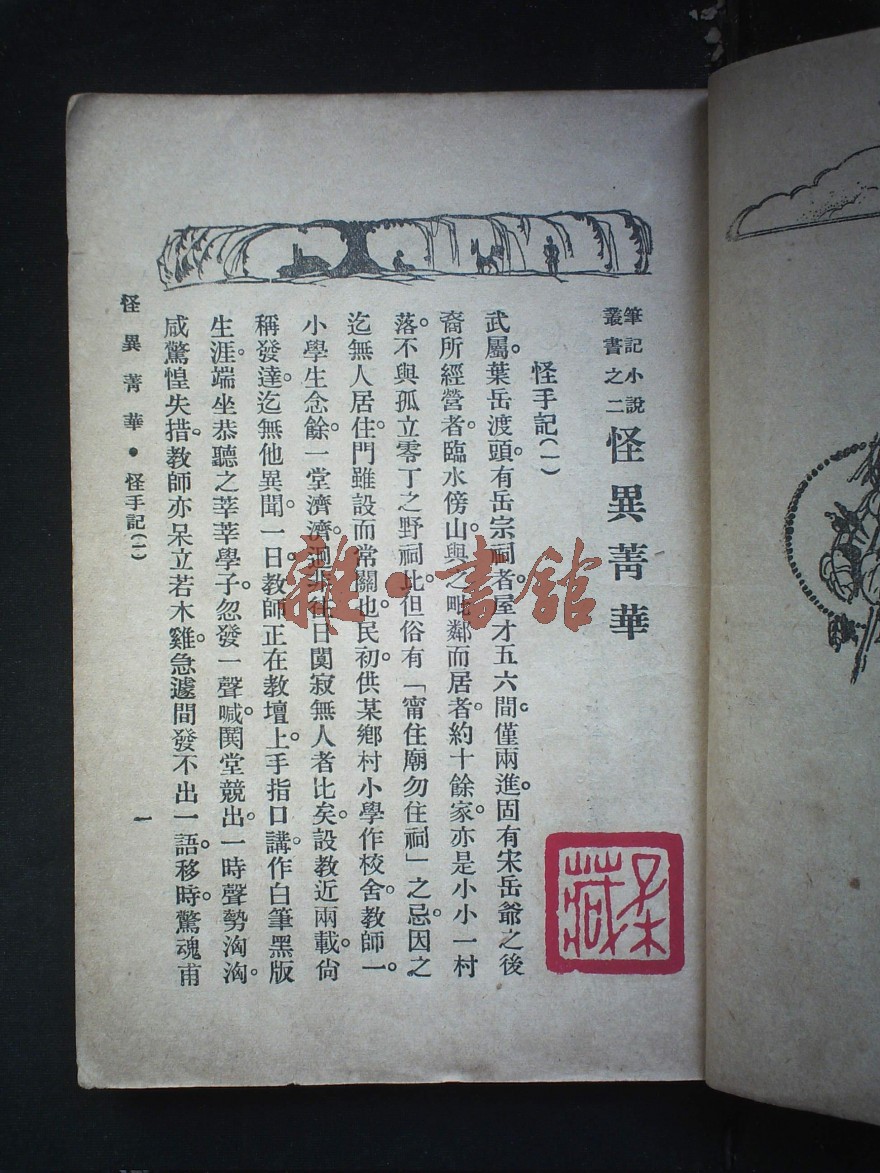 筆記小說
叢書之二
怪異菁華
怪手記(一)
武屬。葉岳渡頭。有岳宗祠者。屋才五六間。僅兩進。固有宋岳爺之後
裔所經營者。臨水傍山。與之毗鄰而居者。約十餘家。亦是小小一村
落。不與孤立零丁之野祠比。但俗有「甯住廟勿住祠」之忌。因之
迄無人居住。門雖設而常關也。民初。供某鄉村小學作校舍。教師一。
小學生念餘。一堂濟濟。迥非往日闃寂無人者比矣。設教近兩載。尙
稱發達。迄無他異聞。一日。教師正在教壇上。手指口講。作白筆黑版
生涯。端坐恭聽之莘莘學子。忽發一聲喊。鬨堂競出。一時聲勢洶洶。
咸驚惶失措。教師亦呆立若木雞。急遽間發不出一語。移時。驚魂甫
怪異菁華・怪手記(一)
一
雜・書館
藏